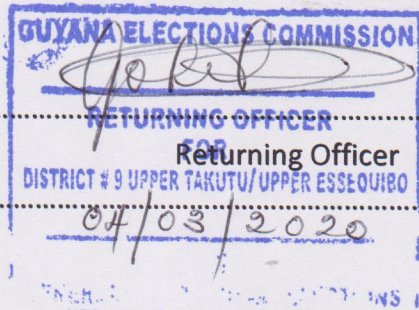 GUYANA ELECTIONS COMMISSION
RETURNING OFFICER
FOR
Returning Officer
DISTRICT # 9 UPPER TAKUTU/UPPER ESSEQUIBO
04/03/2020